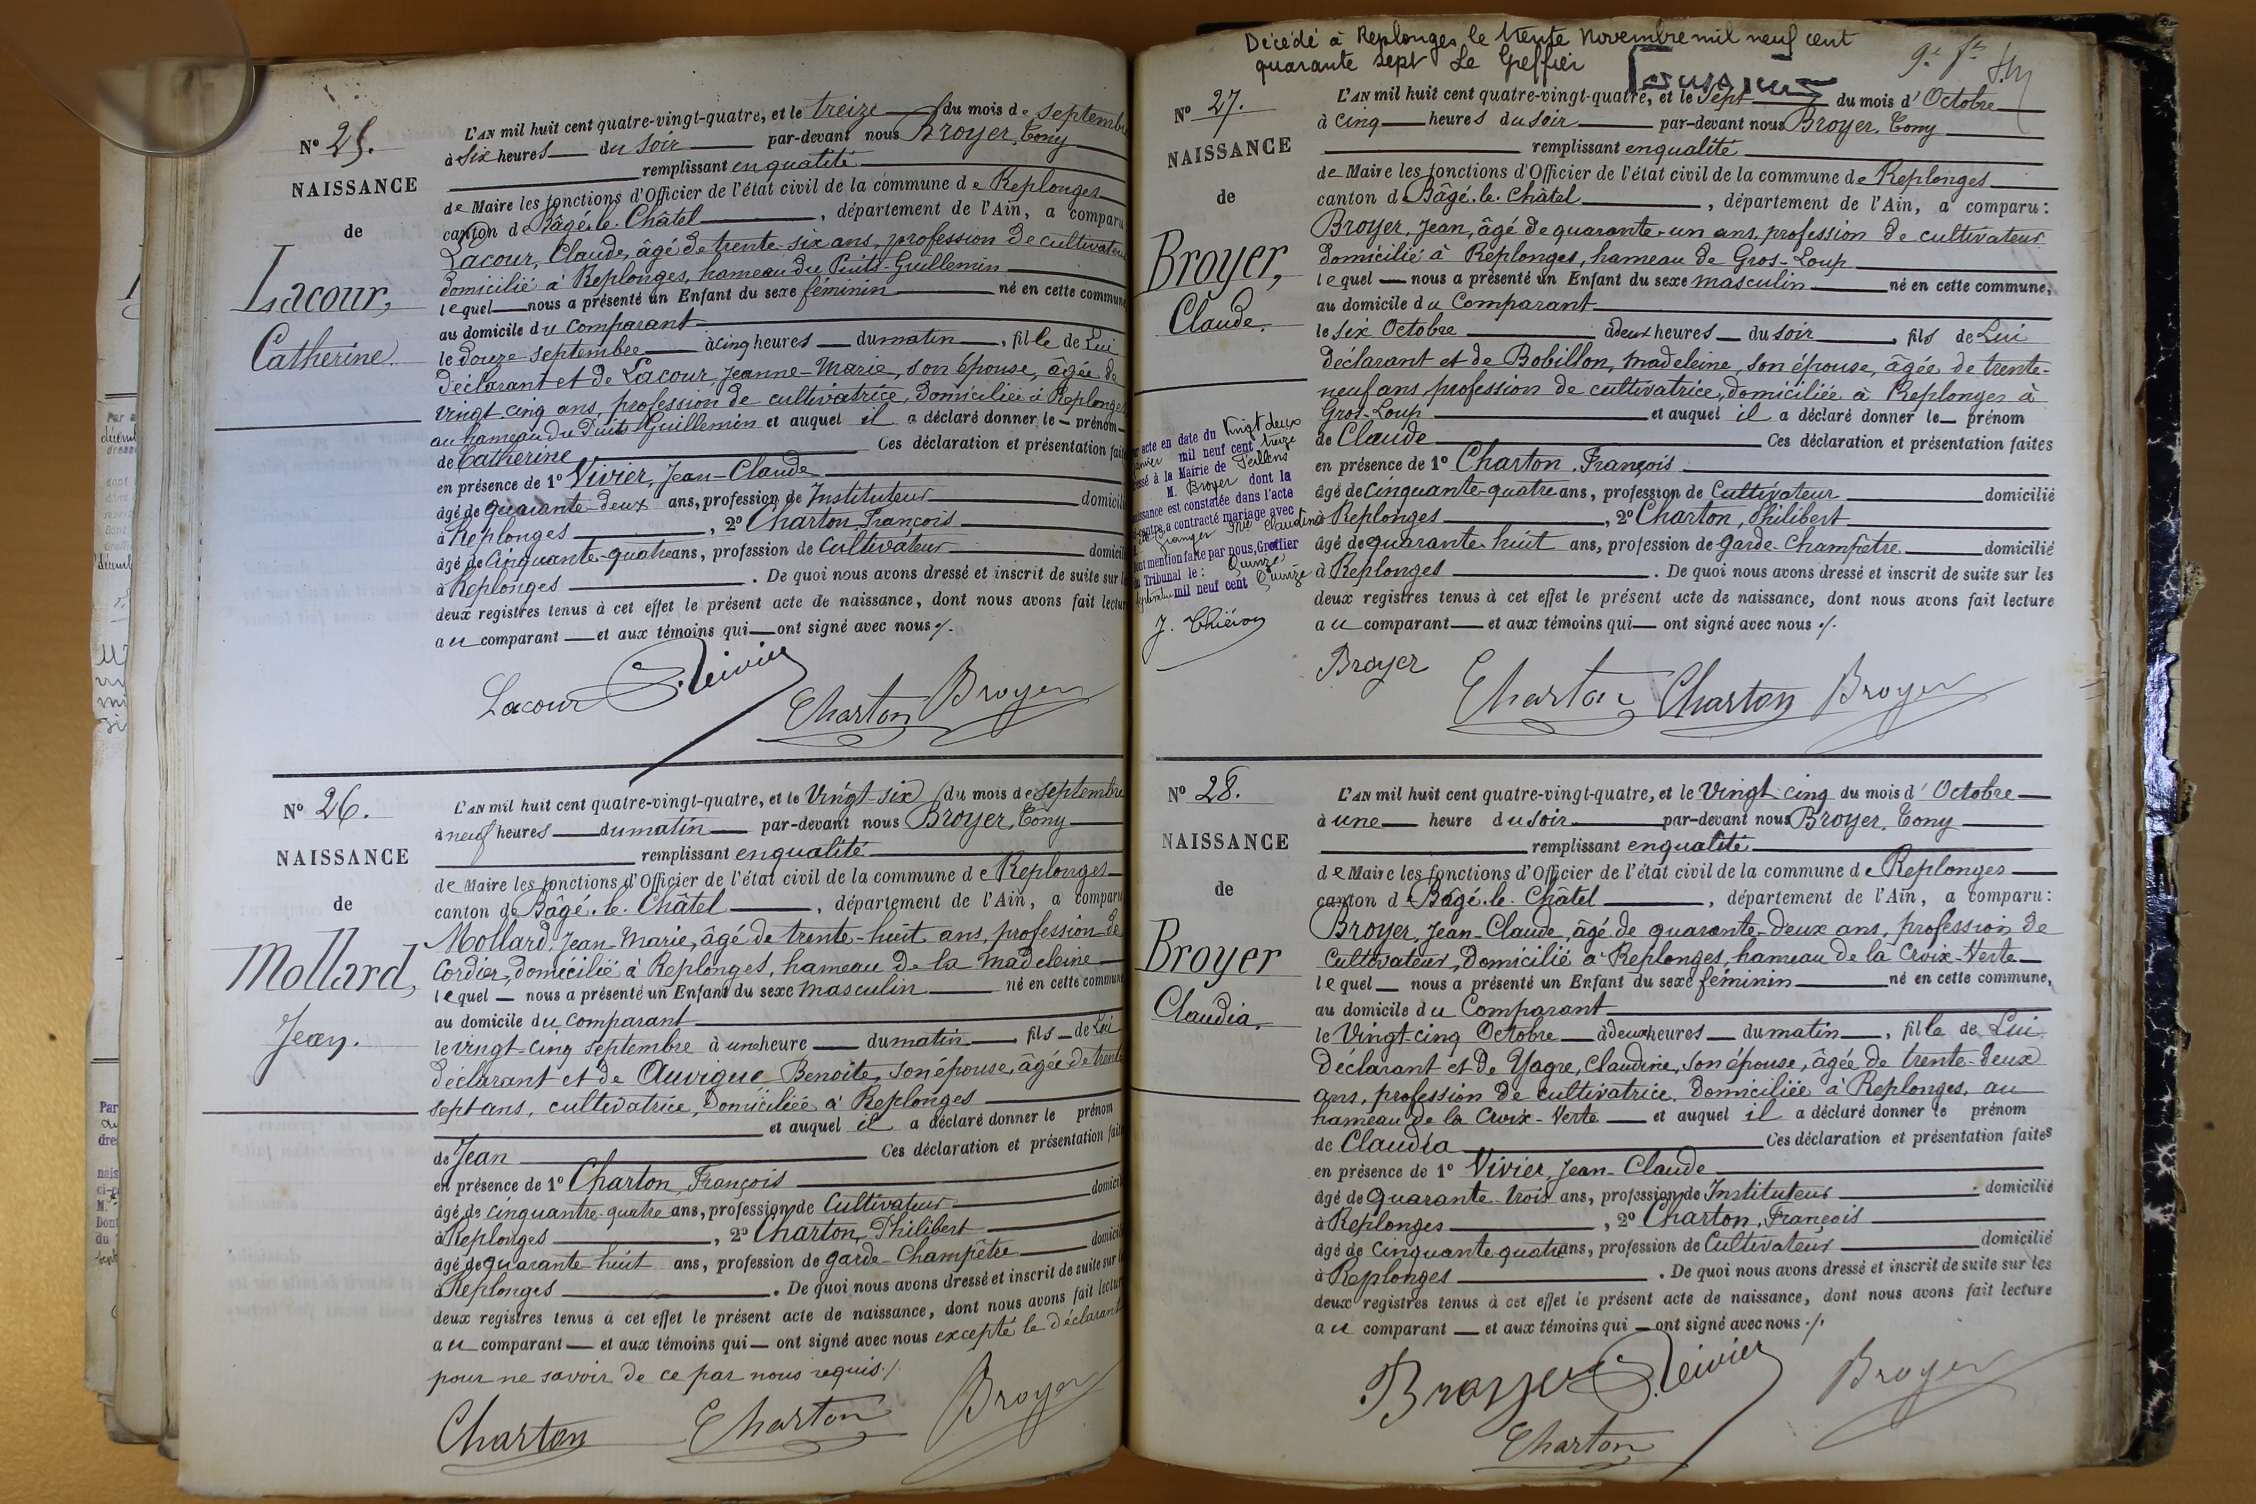 Nº 25.
NAISSANCE
de
Lacour,
Catherine.
L'AN mil huit cent quatre-vingt-quatre, et le treize du mois de Septembre
à six heures du soir par-devant nous Broyer, Tony
remplissant en qualité
de Maire les fonctions d'Officier de l'état civil de la commune de Replonges
canton de Bâgé-le-Châtel, département de l'Ain, a comparu
Lacour, Claude, âgé de trente-six ans, profession de cultivateur
domicilié à Replonges, hameau du Puits-Guillemin
lequel nous a présenté un Enfant du sexe féminin né en cette commune
au domicile du comparant
le douze septembre à cinq heures du matin, fille de Lui
déclarant et de Lacour, Jeanne-Marie, son épouse, âgée de
vingt-cinq ans, profession de cultivatrice, domiciliée à Replonges
au hameau du Puits Guillemin et auquel il a déclaré donner le prénom
de Catherine Ces déclaration et présentation fai
en présence de 1º Vivier, Jean-Claude
âgé de quarante-deux ans, profession de Instituteur domicili
à Replonges, 2º Charton, François
âgé de cinquante-quatre ans, profession de cultivateur domicil
à Replonges. De quoi nous avons dressé et inscrit de suite sur l
deux registres tenus à cet effet le présent acte de naissance, dont nous avons fait lectur
au comparant et aux témoins qui ont signé avec nous ./.
Lacour Vivier
Charton Broyer
Nº 26.
NAISSANCE
de
Mollard,
Jean.
L'AN mil huit cent quatre-vingt-quatre, et le Vingt-six du mois de Septembre
à neuf heures du matin par-devant nous Broyer, Tony
remplissant en qualité
de Maire les fonctions d'Officier de l'état civil de la commune de Replonges
canton de Bâgé-le-Châtel, département de l'Ain, a comparu
Mollard, Jean-Marie, âgé de trente-huit ans, profession de
Cordier, domicilié à Replonges, hameau de la Madeleine
lequel nous a présenté un Enfant du sexe masculin né en cette commune
au domicile du comparant
le vingt-cinq Septembre à une heure du matin, fils de Lui
déclarant et de Auvigue Benoite, son épouse, âgée de trente
sept ans, cultivatrice, domiciliée à Replonges
et auquel il a déclaré donner le prénom
de Jean Ces déclaration et présentation fait
en présence de 1º Charton, François
âgé de cinquante-quatre ans, profession de Cultivateur domicil
à Replonges, 2º Charton, Philibert
âgé de quarante huit ans, profession de garde-Champêtre domicil
à Replonges. De quoi nous avons dressé et inscrit de suite sur l
deux registres tenus à cet effet le présent acte de naissance, dont nous avons fait lectur
au comparant et aux témoins qui ont signé avec nous excepté le déclarant
pour ne savoir de ce par nous requis ./.
Charton Charton Broyer
Décédé à Replonges le trente Novembre mil neuf cent
quarante sept Le Greffier
Nº 27.
NAISSANCE
de
Broyer,
Claude.
acte en date du Vingt deux
mil neuf cent treize
à la Mairie de Feillens
M. Broyer dont la
naissance est constatée dans l'acte
contre a contracté mariage avec
Granger Mie Claudine
mention faite par nous, Greffier
Tribunal le : Quinze
Septembre mil neuf cent Quinze
L'AN mil huit cent quatre-vingt-quatre, et le Sept du mois d'Octobre
à cinq heures du soir par-devant nous Broyer, Tony
remplissant en qualité
de Maire les fonctions d'Officier de l'état civil de la commune de Replonges
canton d Bâgé-le-Châtel, département de l'Ain, a comparu :
Broyer, Jean, âgé de quarante-un ans, profession de cultivateur
domicilié à Replonges, hameau de Gros-Loup
lequel nous a présenté un Enfant du sexe masculin né en cette commune,
au domicile du Comparant
le six Octobre à deux heures du soir, fils de Lui
déclarant et de Bobillon, Madeleine, son épouse, âgée de trente-
neuf ans, profession de cultivatrice, domiciliée à Replonges à
Gros-Loup et auquel il a déclaré donner le prénom
de Claude Ces déclaration et présentation faites
en présence de 1º Charton, François
âgé de cinquante-quatre ans, profession de Cultivateur domicilié
à Replonges, 2º Charton, Philibert
âgé de quarante huit ans, profession de garde-Champêtre domicilié
à Replonges. De quoi nous avons dressé et inscrit de suite sur les
deux registres tenus à cet effet le présent acte de naissance, dont nous avons fait lecture
au comparant et aux témoins qui ont signé avec nous ./.
Broyer Charton Charton Broyer
Nº 28.
NAISSANCE
de
Broyer
Claudia.
L'AN mil huit cent quatre-vingt-quatre, et le Vingt cinq du mois d'Octobre
à une heure du soir par-devant nous Broyer, Tony
remplissant en qualité
de Maire les fonctions d'Officier de l'état civil de la commune de Replonges
canton d Bâgé-le-Châtel, département de l'Ain, a comparu :
Broyer, Jean-Claude, âgé de quarante-deux ans, profession de
Cultivateur, domicilié à Replonges, hameau de la Croix-Verte
lequel nous a présenté un Enfant du sexe féminin né en cette commune,
au domicile du Comparant
le Vingt-cinq Octobre à deux heures du matin, fille de Lui
Déclarant et de Yagre, Claudine, son épouse, âgée de trente-deux
ans, profession de cultivatrice, domiciliée à Replonges, au
hameau de la Croix-Verte et auquel il a déclaré donner le prénom
de Claudia Ces déclaration et présentation faites
en présence de 1º Vivier, Jean-Claude
âgé de quarante-trois ans, profession de Instituteur domicilié
à Replonges, 2º Charton, François
âgé de cinquante-quatre ans, profession de Cultivateur domicilié
à Replonges. De quoi nous avons dressé et inscrit de suite sur les
deux registres tenus à cet effet le présent acte de naissance, dont nous avons fait lecture
au comparant et aux témoins qui ont signé avec nous ./.
Broyer Vivier Broyer
Charton